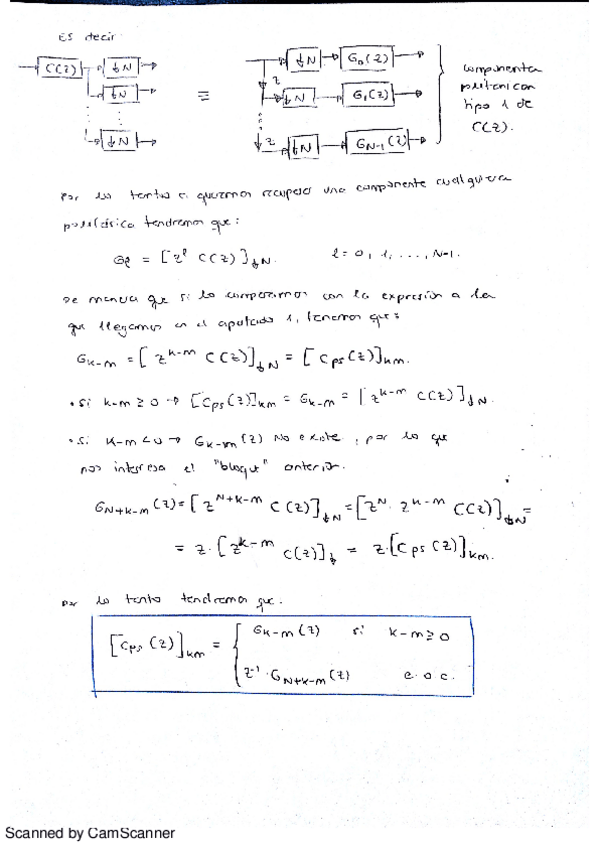 Es decir
C(z) ↓N ↓N G₀(z)
z
↓N ↓N G₁(z)
↓N z ↓N G_{N-1}(z)
≡
componentes
polifásicas
tipo 1 de
C(z).
Por lo tanto si queremos recuperar una componente cualquiera
polifásica tendremos que:
G_ℓ = [z^ℓ C(z)]_{↓N}. ℓ = 0, 1, ..., N-1.
De manera que si lo comparamos con la expresión a la
que llegamos en el apartado 1, tenemos que:
G_{k-m} = [z^{k-m} C(z)]_{↓N} = [C_{ps}(z)]_{km}.
• Si k-m ≥ 0 → [C_{ps}(z)]_{km} = G_{k-m} = [z^{k-m} C(z)]_{↓N}.
• Si k-m < 0 → G_{k-m}(z) No existe, por lo que
nos interesa el "bloque" anterior.
G_{N+k-m}(z) = [z^{N+k-m} C(z)]_{↓N} = [z^N · z^{k-m} C(z)]_{↓N} =
= z · [z^{k-m} C(z)]_↓ = z · [C_{ps}(z)]_{km}.
por lo tanto tendremos que:
[C_{ps}(z)]_{km} = { G_{k-m}(z) si k-m ≥ 0
z^{-1} · G_{N+k-m}(z) e.o.c.
Scanned by CamScanner